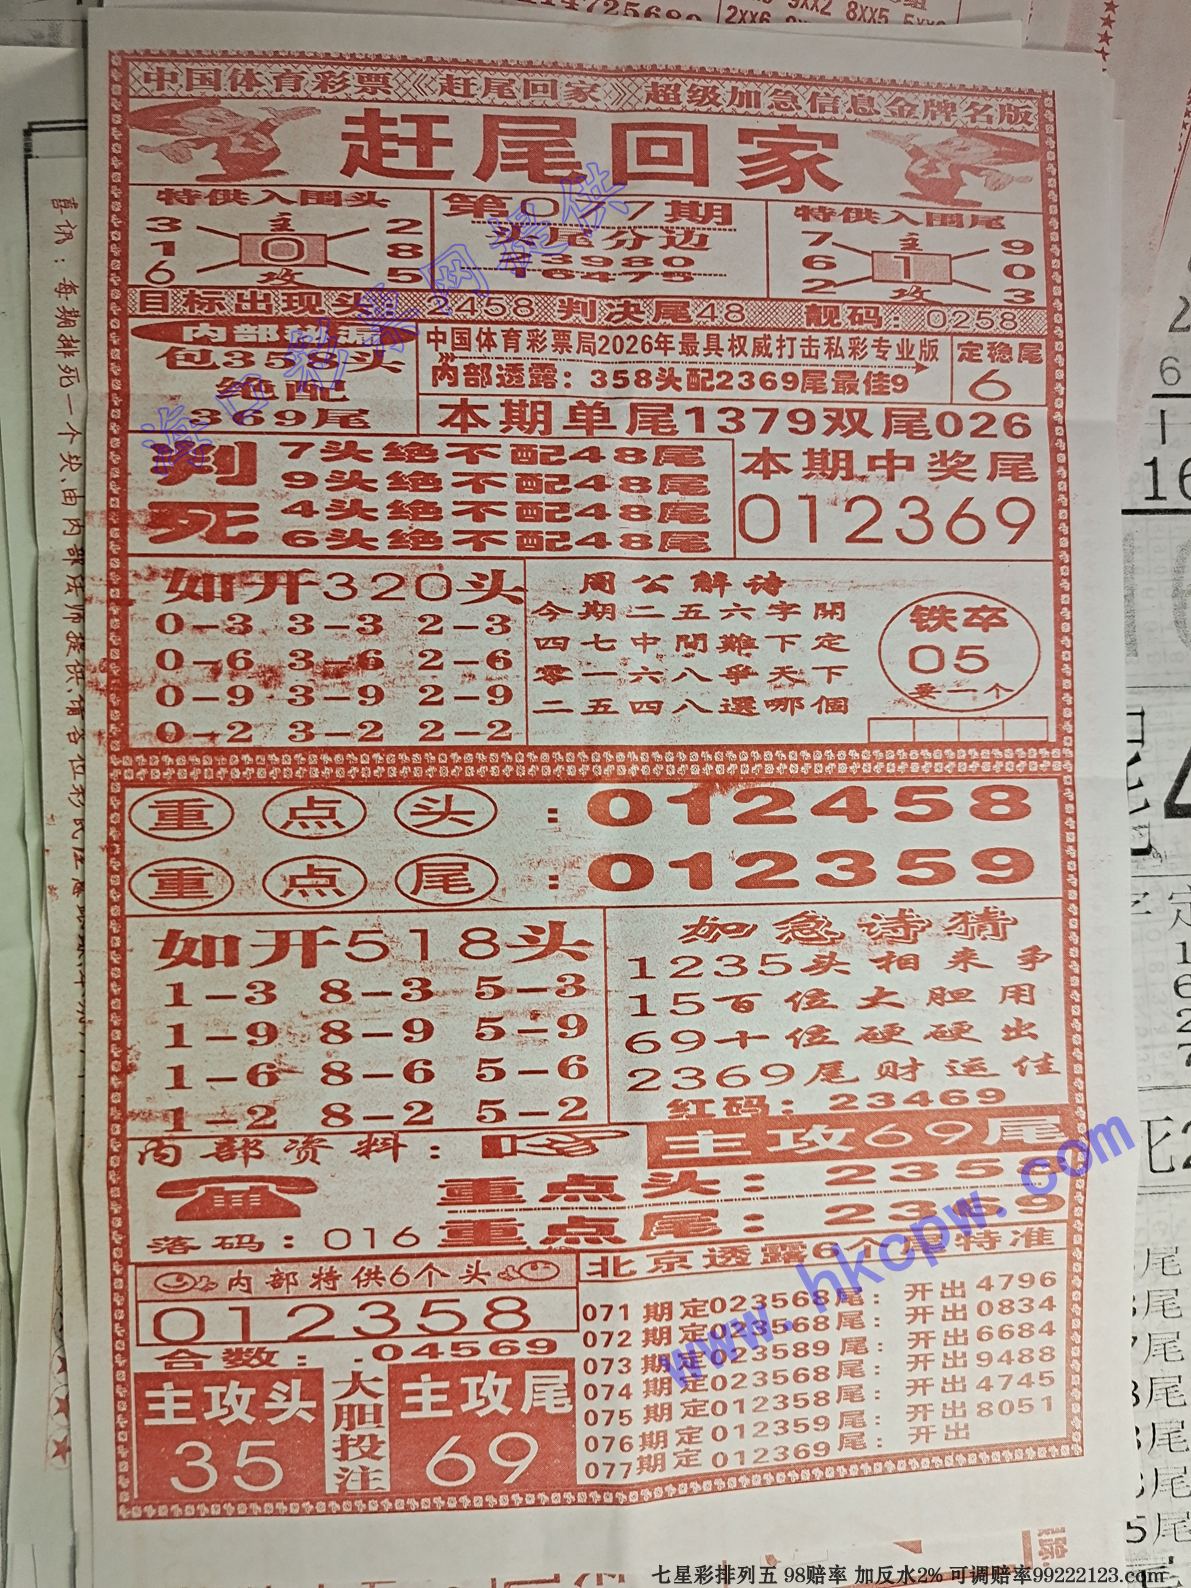 中国体育彩票《赶尾回家》超级加急信息金牌名版
赶尾回家
特供入围头
3 主 2
1 0 8
6 攻 5
第077期
头尾分边
16475
特供入围尾
7 主 9
6 1 0
2 攻 3
目标出现头：2458 判决尾48 靓码：0258
包358头
绝配
369尾
中国体育彩票局2026年最具权威打击私彩专业版
内部透露：358头配2369尾最佳9
定稳尾
6
本期单尾1379双尾026
判死
7头绝不配48尾
9头绝不配48尾
4头绝不配48尾
6头绝不配48尾
本期中奖尾
012369
如开320头
0-3 3-3 2-3
0-6 3-6 2-6
0-9 3-9 2-9
0-2 3-2 2-2
周公解诗
今期二五六字開
四七中間難下定
零一六八爭天下
二五四八選哪個
铁卒
05
卖一个
重点头：012458
重点尾：012359
如开518头
1-3 8-3 5-3
1-9 8-9 5-9
1-6 8-6 5-6
1-2 8-2 5-2
加急诗猜
1235头相来争
15百位大胆用
69十位硬硬出
2369尾财运佳
红码：23469
内部资料：
主攻69尾
重点头：2358
重点尾：2369
落码：016
内部特供6个头
012358
合数：.04569
主攻头
35
大胆投注
主攻尾
69
北京透露6个尾特准
071期定023568尾：开出4796
072期定023568尾：开出0834
073期定023589尾：开出6684
074期定023568尾：开出9488
075期定012358尾：开出4745
076期定012359尾：开出8051
077期定012369尾：开出
www.hkcpw.com
七星彩排列五 98赔率 加反水2% 可调赔率99222123.com